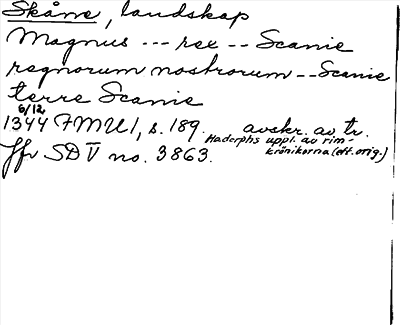 Skåne, landskap
Magnus --- rex -- Scanie
regnorum nostrorum -- Scanie
terre Scanie
6/12
1344 FMU I, s. 189. avskr. av tr.
Hadorphs uppl. av rim-
krönikorna (eft. orig.)
Jfr SD V no. 3863.